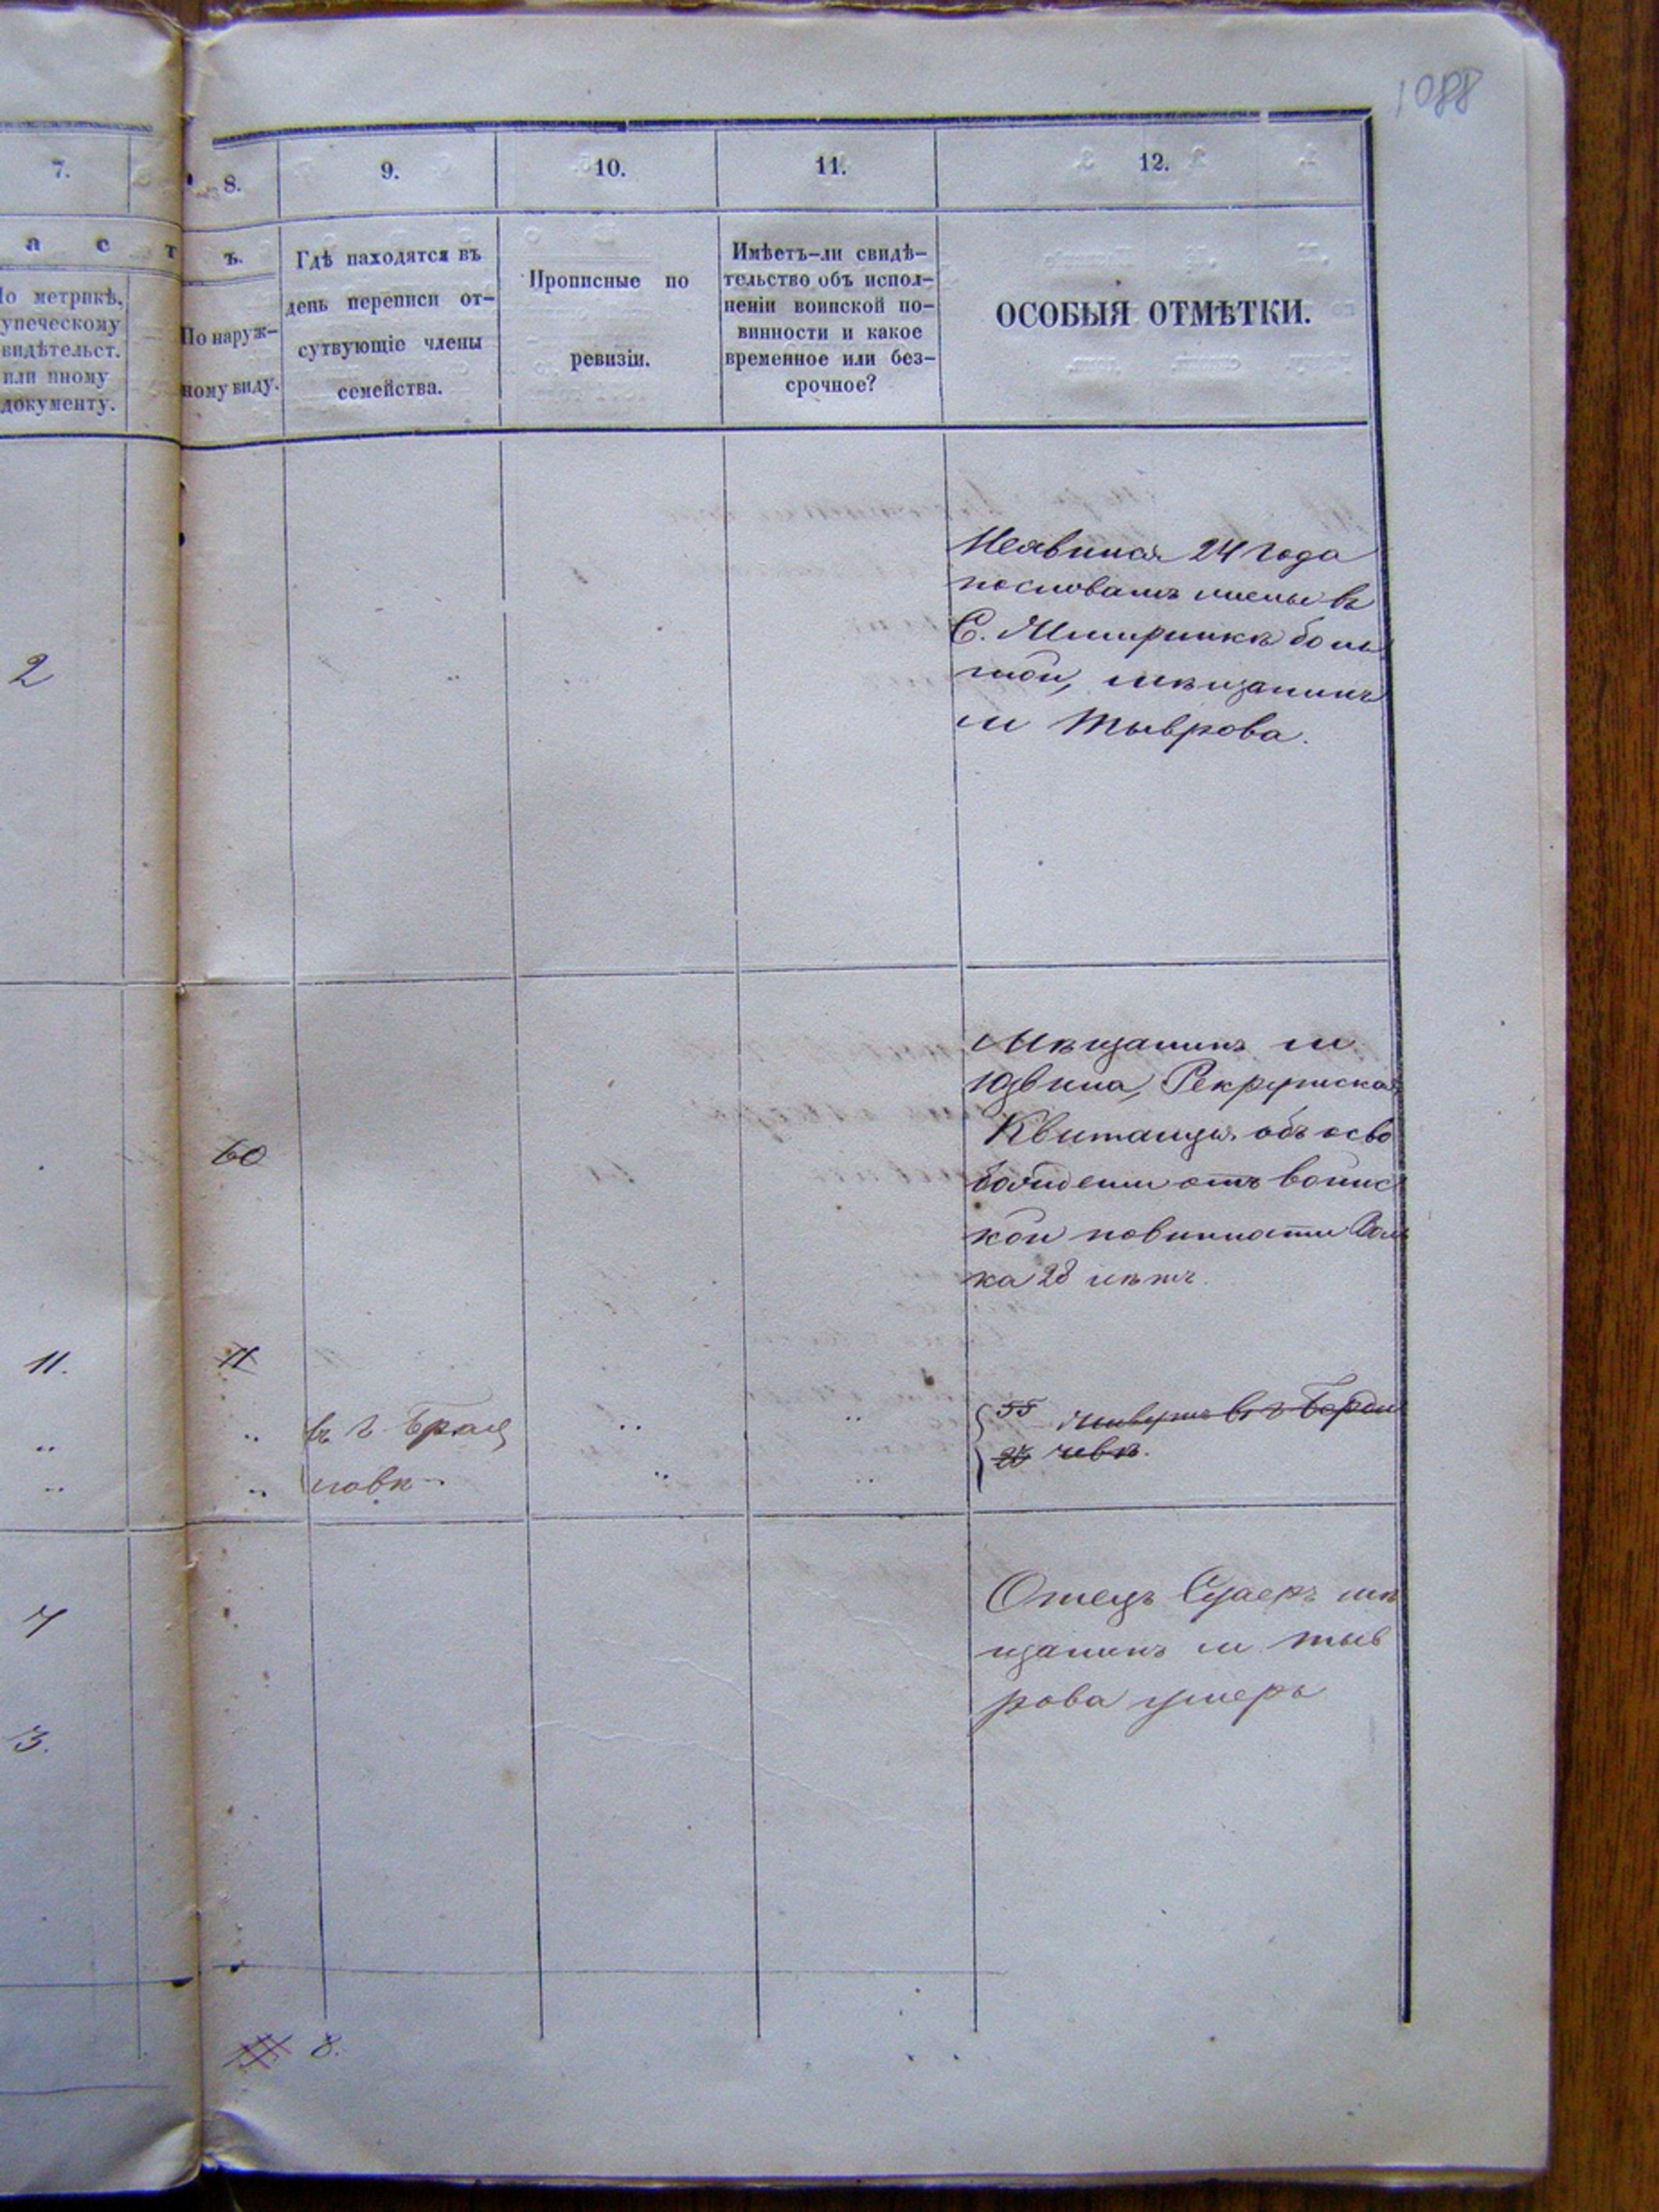 1088
7.
8.
9.
10.
11.
12.
а с т
ъ.
По метрикѣ,
купеческому
свидѣтельст.
или иному
документу.
По наруж-
ному виду.
Гдѣ находятся въ
день переписи от-
сутвующіе члены
семейства.
Прописные по
ревизіи.
Имѣетъ-ли свидѣ-
тельство объ испол-
неніи воинской по-
винности и какое
временное или без-
срочное?
ОСОБЫЯ ОТМѢТКИ.
2
24 года
въ
С. боль
мѣщанинъ
м Тыврова.
Мѣщанинъ м
Рекрутская
60
Квитанция объ осво
бождении отъ воинс
кой повинности
ка 28 лѣтъ
11.
11
55 живутъ въ г Берди
чевѣ.
въ г Брац
лавѣ
Отецъ мѣ
щанинъ м тыв
рова умеръ
7
3.
8.